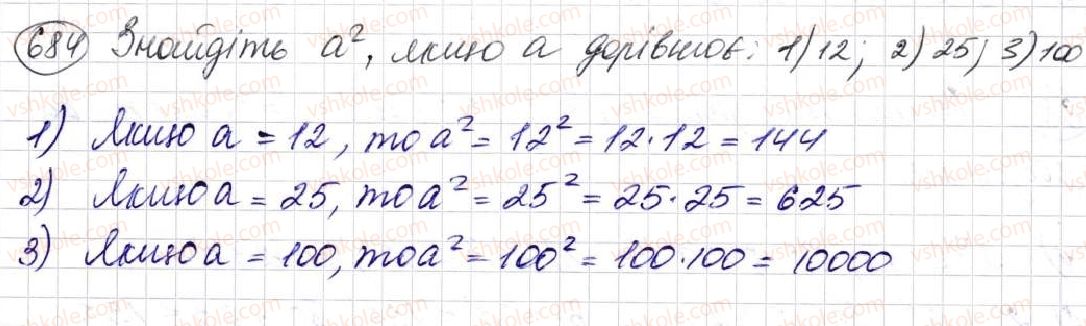 684 Знайдіть a², якщо a дорівнює: 1) 12; 2) 25; 3) 100
1) Якщо a = 12, то a² = 12² = 12·12 = 144
2) Якщо a = 25, то a² = 25² = 25·25 = 625
3) Якщо a = 100, то a² = 100² = 100·100 = 10000